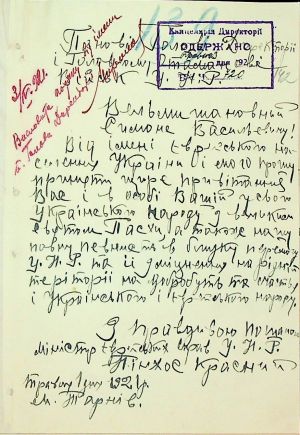 Канцелярія Директорії
ОДЕРЖАНО
192
У. Н. Р.
Панові Голові Директорії
і Головному Отаману
У. Н. Р.
Вельмишановний
Симоне Васильевичу!
Від імені Єврейського на-
селення України і свого прошу
прийняти щире привітання
Вас і в особі Вашій усього
Українського Народу з великим
святом Пасхи, а також нашу
повну певність в близку перемогу
У. Н. Р. та її зміцнення на рідній
теріторії на добробут та щастя
і Українського і Єврейського народу.
З правдивою пошаною
Міністр Єврейських справ У. Н. Р.
Пінхос Красний
Травня 1 дня 1921 р.
м. Тарнів.